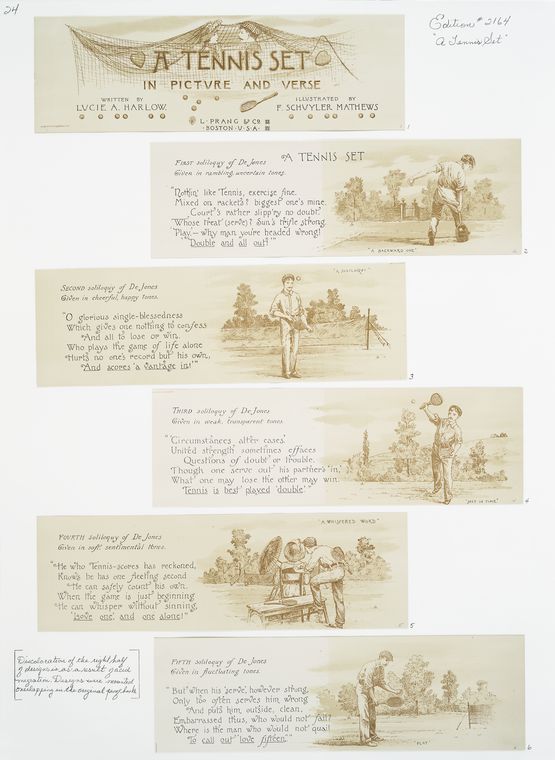 24
Edition # 2164
"A Tennis Set"
A TENNIS SET
IN PICTVRE AND VERSE
WRITTEN BY
LUCIE A. HARLOW.
ILLUSTRATED BY
F. SCHUYLER MATHEWS
L. PRANG & CO.
BOSTON · U · S · A ·
1
A TENNIS SET
FIRST soliloquy of De Jones
Given in rambling, uncertain tones.
"Nothin' like Tennis, exercise fine.
Mixed on rackets? biggest one's mine.
Court's rather slipp'ry no doubt.
Whose treat (serve)? Sun's trifle strong,
"Play,— why man you're headed wrong!
"Double and all out!'"
"A BACKWARD ONE"
2
SECOND soliloquy of De Jones
Given in cheerful, happy tones.
"O glorious single-blessedness
Which gives one nothing to confess
And all to lose or win.
Who plays the game of life alone
Hurts no one's record but his own,
And scores 'a vantage in!'"
3
THIRD soliloquy of De Jones
Given in weak, transparent tones.
"'Circumstances alter cases.'
United strength sometimes effaces
Questions of doubt or trouble.
Though one serve out his partner's 'in,'
What one may lose the other may win.
Tennis is best played 'double!'"
"JUST IN TIME"
4
"A WHISPERED WORD"
FOURTH soliloquy of De Jones
Given in soft sentimental tones.
"He who Tennis-scores has reckoned,
Knows he has one fleeting second
He can safely count his own.
When the game is just beginning
He can whisper without sinning,
'Love one, and one alone!'"
5
FIFTH soliloquy of De Jones
Given in fluctuating tones.
"But when his serve, however strung,
Only too often serves him wrong
And puts him, outside, clean,
Embarrassed thus, who would not fail?
Where is the man who would not quail
To call out 'love fifteen'"
"PLAY"
6
Discoloration of the right half
of designs is as a result of acid
migration. Designs were mounted
overlapping in the original